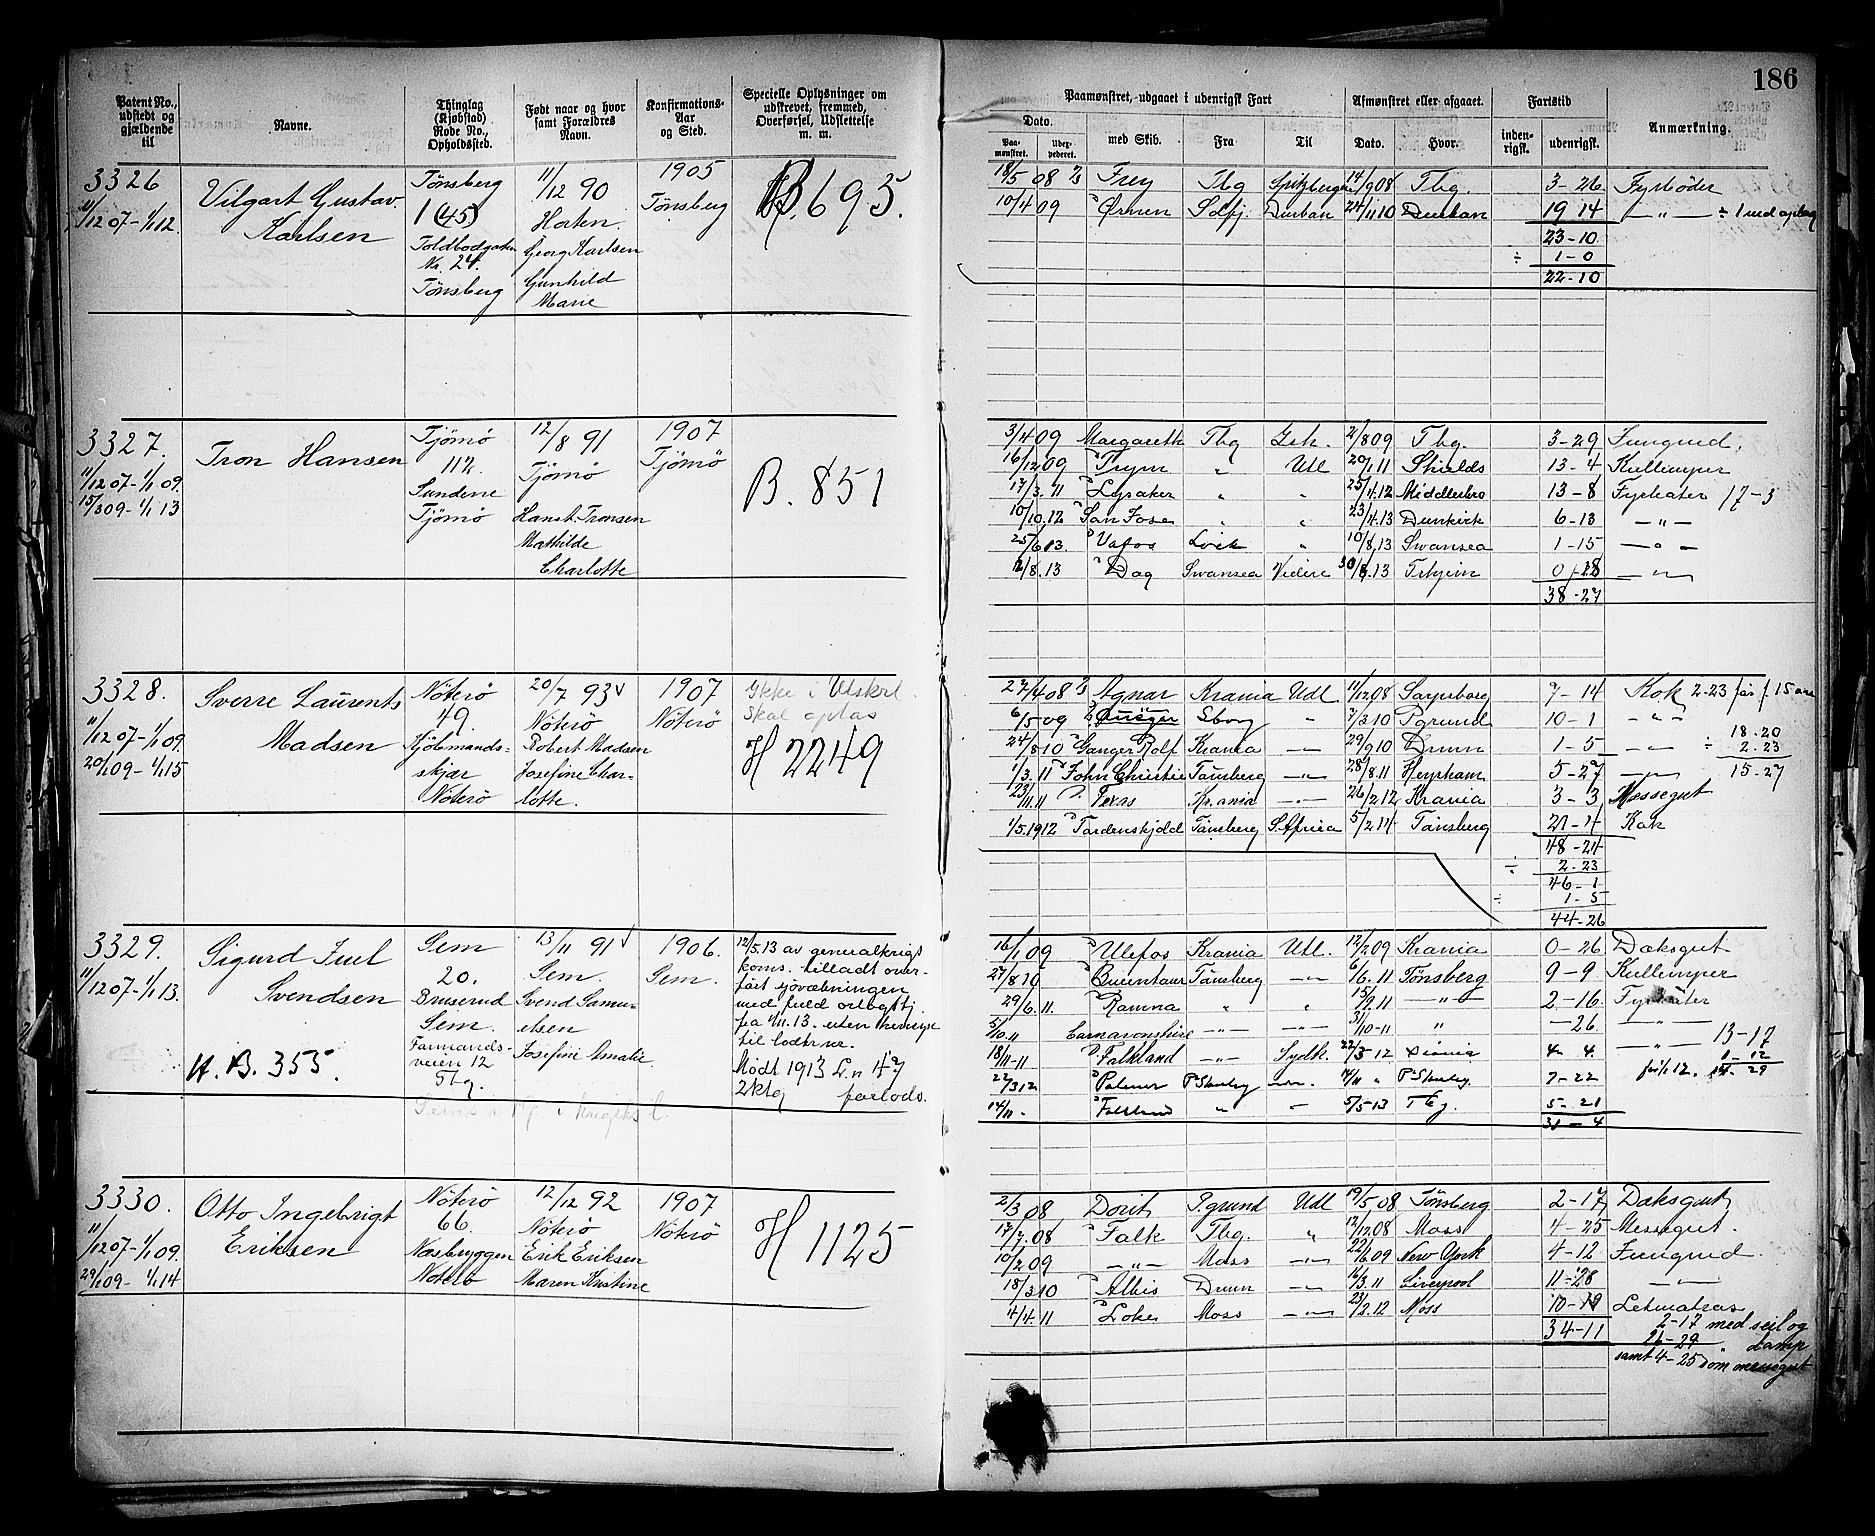 186
Patent No., udstedt og gjældende til
Navne.
Thinglag (Kjøbstad) Rode No., Opholdssted.
Født naar og hvor samt Forældres Navn.
Konfirmations-Aar og Sted.
Specielle Oplysninger om udskrevet, fremmed, Overførsel, Udslettelse m. m.
Paamønstret, udgaaet i udenrigsk Fart
Afmønstret eller afgaaet.
Fartstid
Anmærkning.
Dato.
Paa-mønstret.
Udex-pederet.
med Skib.
Fra
Til
Dato.
Hvor.
inden-rigsk.
udenrigsk.
3326
11/12 07-1/1 12.
Vilgart Gustav
Karlsen
Tønsberg
1 (45)
Toldbodgaten
Nr. 24.
Tønsberg
11/12 90
Horten.
Georg Karlsen
Gunhild
Marie
1905
Tønsberg
B. 695.
18/5 08 Frey Tbg Spitzbergen 14/9 08 Tbg. 3-26 Fyrbøder
10/4 09 Ørnen Sdfj. Durban 24/11 10 Durban 19 14 —"— ÷ 1 md oplag
23-10
÷ 1-0
22-10
3327.
11/12 07-1/1 09.
15/3 09-1/1 13
Tron Hansen
Tjömö
112.
Sundene
Tjömö
12/8 91
Tjömö
Hans A. Tronsen
Mathilde
Charlotte
1907
Tjömö
B. 851
3/4 09 Margareth Tbg Grk. 2/8 09 Tbg. 3-29 Jungmd.
16/12 09 Trym " Utl 20/1 11 Shields 13-4 Kullemper
17/3 11 Lysaker " " 25/4 12 Middlesbro 13-8 Fyrbøter 17-3
10/10 12 San Jose " " 23/4 13 Dunkirk 6-13 —"—
25/6 13. Vafos Lvik " 10/8 13 Swansea 1-15 —"—
12/8.13 Dag Swansea Videre 30/8 13 Trhjem 0-18 —"—
38-27
3328.
11/12 07-1/1 09.
20/1 09-1/1 15
Sverre Laurents
Madsen
Nöterö
49.
Kjöbmands-
skjær
Nöterö
20/7 93
Nöterö
Robert Madsen
Josefine Char-
lotte.
1907
Nöterö
Ikke i Utskrl.
Skal optas
H 2249
27/4 08 Agnar Krania Utl 11/12 08 Sarpsborg 7-14 Kok 2-23 før f. 15 aar
6/5 09 Sborg " 7/3 10 Pgrund 10-1 —"—
24/8 10 Ganger Rolf Krania —"— 29/9 10 Drmn 1-5 —"—
18-20
÷ 2-23
15-27
1/3.11 John Christie Tønsberg —"— 28/8.11 Heysham 5-27 —"—
23/11.11 Texas Kr.ania —"— 26/2 12 Krania 3-3 Messegut
1/5.1912 Tordenskjold Tønsberg S. Africa 5/2 14 Tønsberg 21-4 Kok
48-24
÷ 2-23
46-1
÷ 1-5
44-26
3329.
11/12 07-1/1 13.
Sigurd Juel
Svendsen
H. B. 355.
Sem
20.
Bruserud
Sem.
Farmands-
veien 12
Tbg.
13/11 91
Sem.
Svend Samu-
elsen
Josefine Amalie
1906.
Sem.
12/5.13 av generalkrigs
koms. tilladt over-
ført sjøvæbningen
med fuld orlogstj.
fra 1/11.13. uten hensyn
til lodtr.nr.
Mødt 1913 L.n 47
2ktg forlods.
16/1 09 Ulefos Krania Utl. 12/2 09 Krania 0-26 Dæksgut
27/8 10 Tønsberg —"— 6/6.11 Tønsberg 9-9 Kullemper
29/6.11. Ramna " " 15/9.11 —"— 2-16. Fyrbøter
5/10.11 Carnarvonshire —"— —"— 31/10-11 " —26. —"—
13-17
18/11-11 Falkland —"— Sydh. 22/3-12 4-4. —"—
22/3 12 Palmer 7-22 før 1/1 12.
14/11 - Falkland " — 5/5 13 Tbg. 5-21
31-4
3330.
11/12 07-1/1 09.
29/1 09-1/1 14
Otto Ingebrigt
Eriksen
Nöterö
66.
Næsbryggen
Nöterö
12/12 92
Nöterö
Erik Eriksen
Maren Kristine
1907
Nöterö
H 1125
2/3 08 Dorit P.grund Utl 19/5 08 Tønsberg 2-17 Dæksgut
17/7.08 Falk Tbg. " 12/12 08 Moss 4-25 Messegut.
10/2 09 —"— Moss —"— 22/6 09 New York 4-12 Jungmd.
18/3 10 Albis Drmn —"— 16/3.11 Liverpool 11-28 —"—
4/4.11 Loke Moss —"— 23/2.12 Moss 10-19 Letmatros
34-11
2-17 med seil og
26-29 " damp
samt 4-25 som messegut